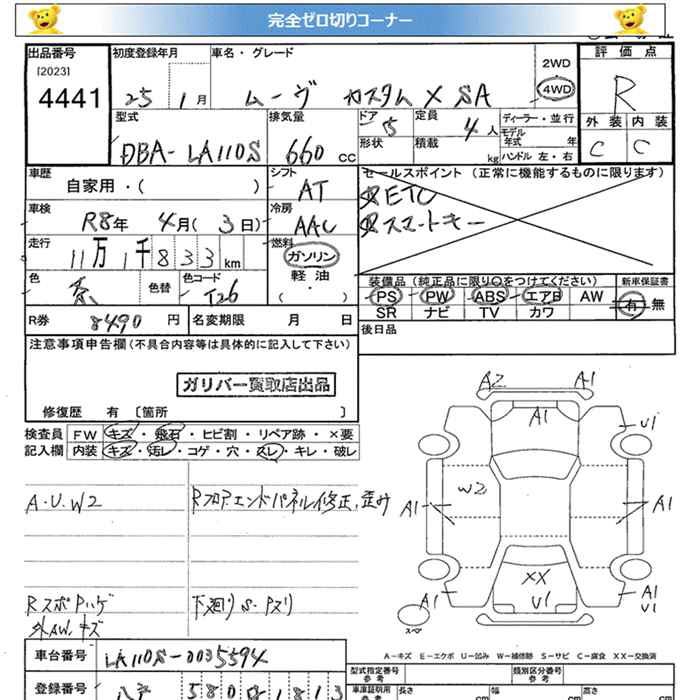 完全ゼロ切りコーナー
出品番号 初度登録年月 車名・グレード 評価点
[2023] 4441 25 1月 ムーヴ カスタム X SA 2WD 4WD R
型式 排気量 ドア 定員 ディーラー・並行 外装 内装
DBA-LA110S 660cc 5 4人 モデル年式 年 C C
形状 積載 kg ハンドル 左・右
車歴 自家用・( ) シフト AT セールスポイント (正常に機能するものに限ります)
ETC
スマートキー
車検 R8年 4月(3日) 冷房 AAC
走行 11万1千833km 燃料 ガソリン 軽油 ( ・ )
色 色替 色コード T26
装備品(純正品に限り○をつけてください) 新車保証書
PS PW ABS エアB AW 有・無
SR ナビ TV カワ
R券 8490円 名変期限 月 日 後日品
注意事項申告欄(不具合内容等は具体的に記入して下さい)
ガリバー買取店出品
修復歴 有 〔箇所 〕
検査員 FW キズ・飛石・ヒビ割・リペア跡・×要
記入欄 内装 キズ・汚レ・コゲ・穴・スレ・キレ・破レ
A2 A1
A1 U1
A.U.W2 Rフロア.エンドパネル修正.歪み
W2 A1 A1
XX
U1
A1 A1
U1
スペ
Rスポ Pハゲ 下廻りS.Pズリ
外AW.キズ
A-キズ E-エクボ U-凹み W-補修跡 S-サビ C-腐食 XX-交換済
車台番号 LA110S-0035594
型式指定番号 参考 類別区分番号 参考
登録番号 八戸 580 1813
車庫証明用 参考 長さ cm 幅 cm 高さ cm